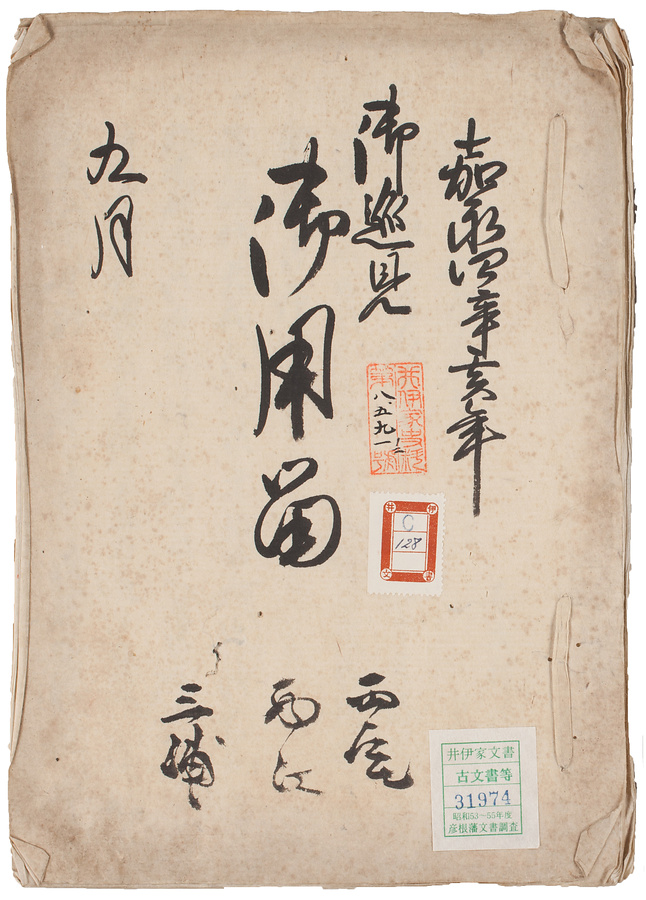 嘉永四辛亥年
御巡見
御用留
九月
三浦
井伊家史料
第八五九一號
井伊
C
128
文書
井伊家文書
古文書等
31974
昭和53~55年度
彦根藩文書調査